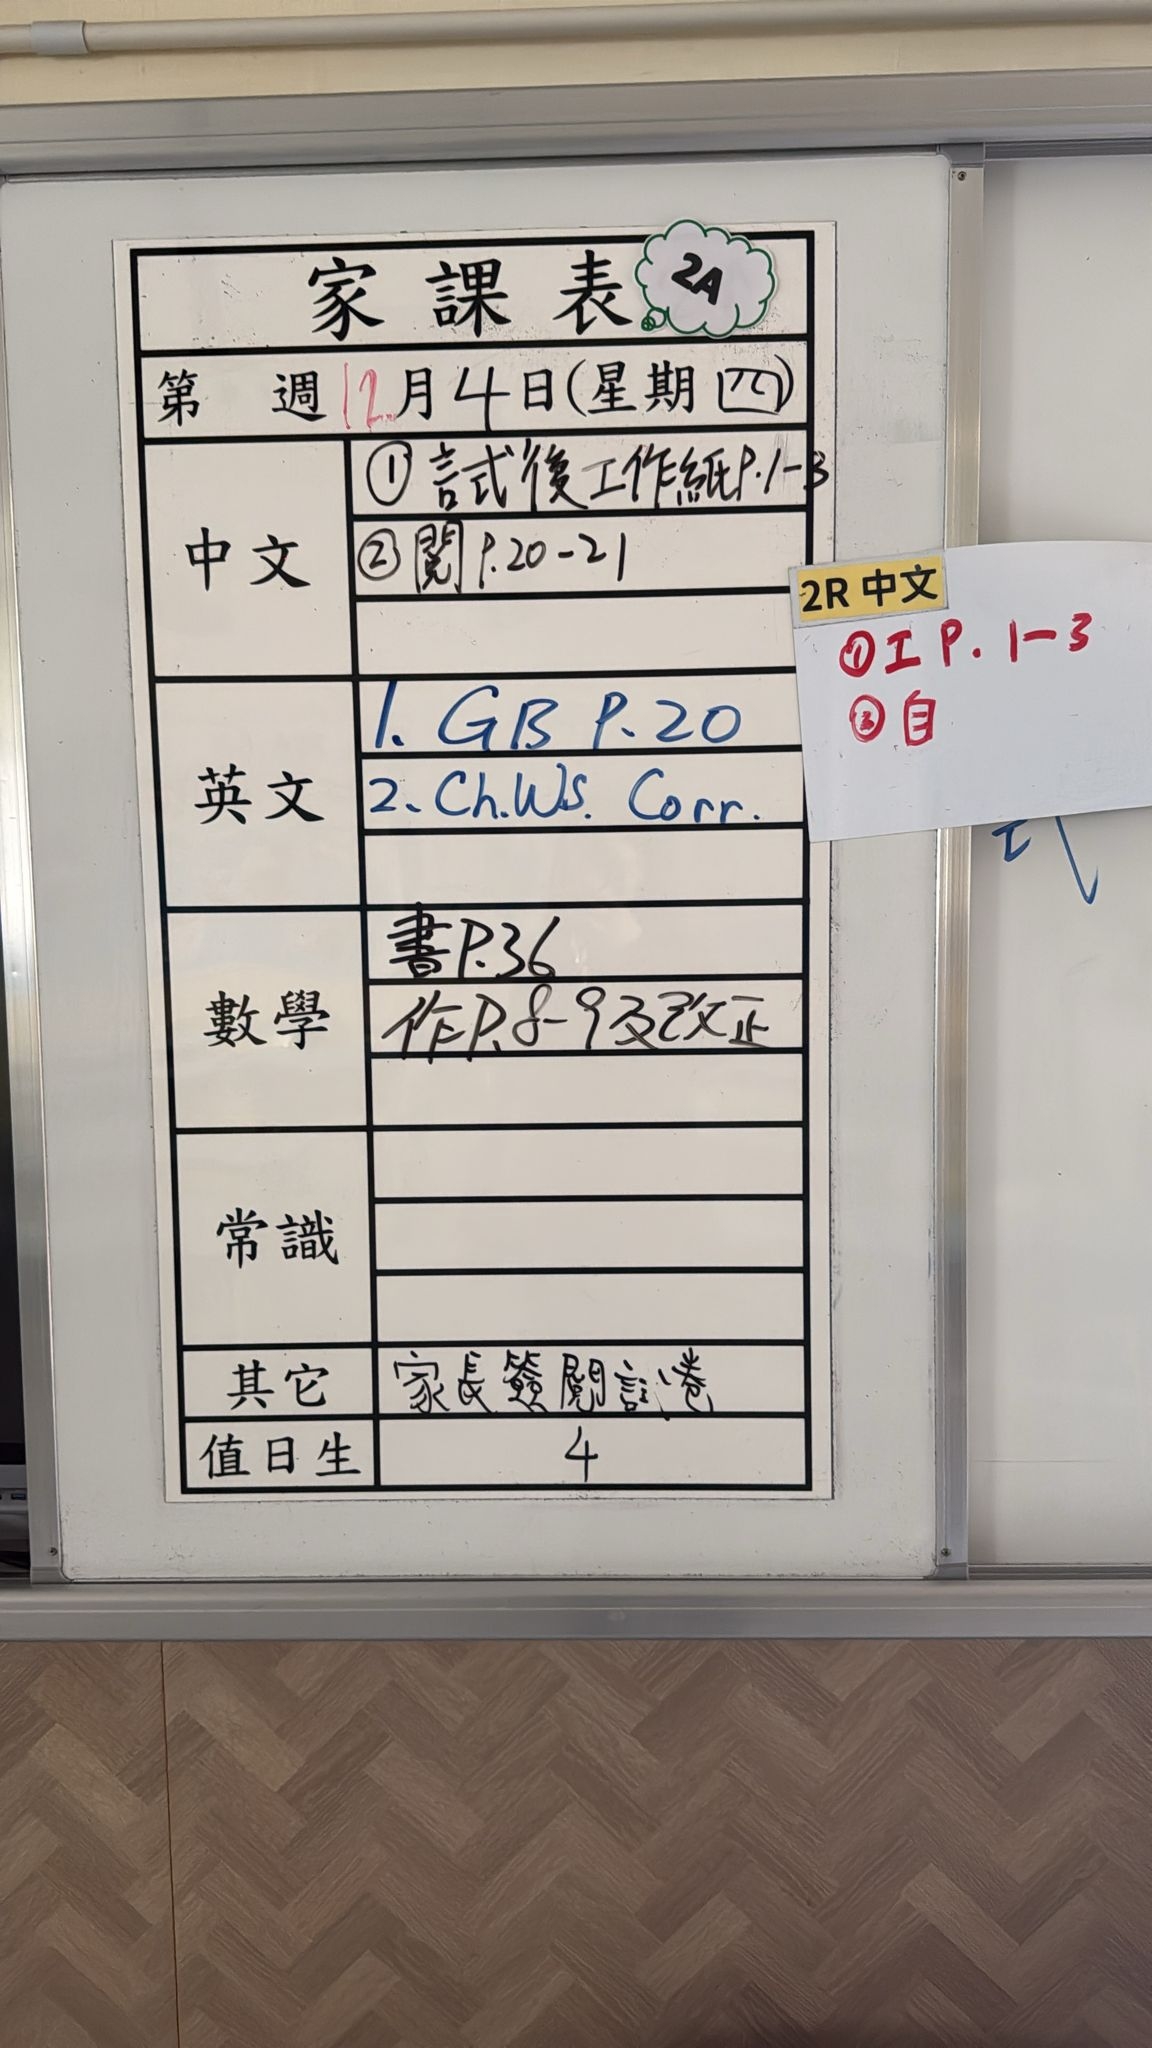 家課表
2A
第 週 12月4日(星期四)
中文
① 試後工作紙P.1-3
② 閱P.20-21
2R 中文
① 工 P. 1-3
② 自
英文
1. GB P.20
2. Ch.WS. Corr.
數學
書P.36
作P.8-9及改正
常識
其它
家長簽閱試卷
值日生
4